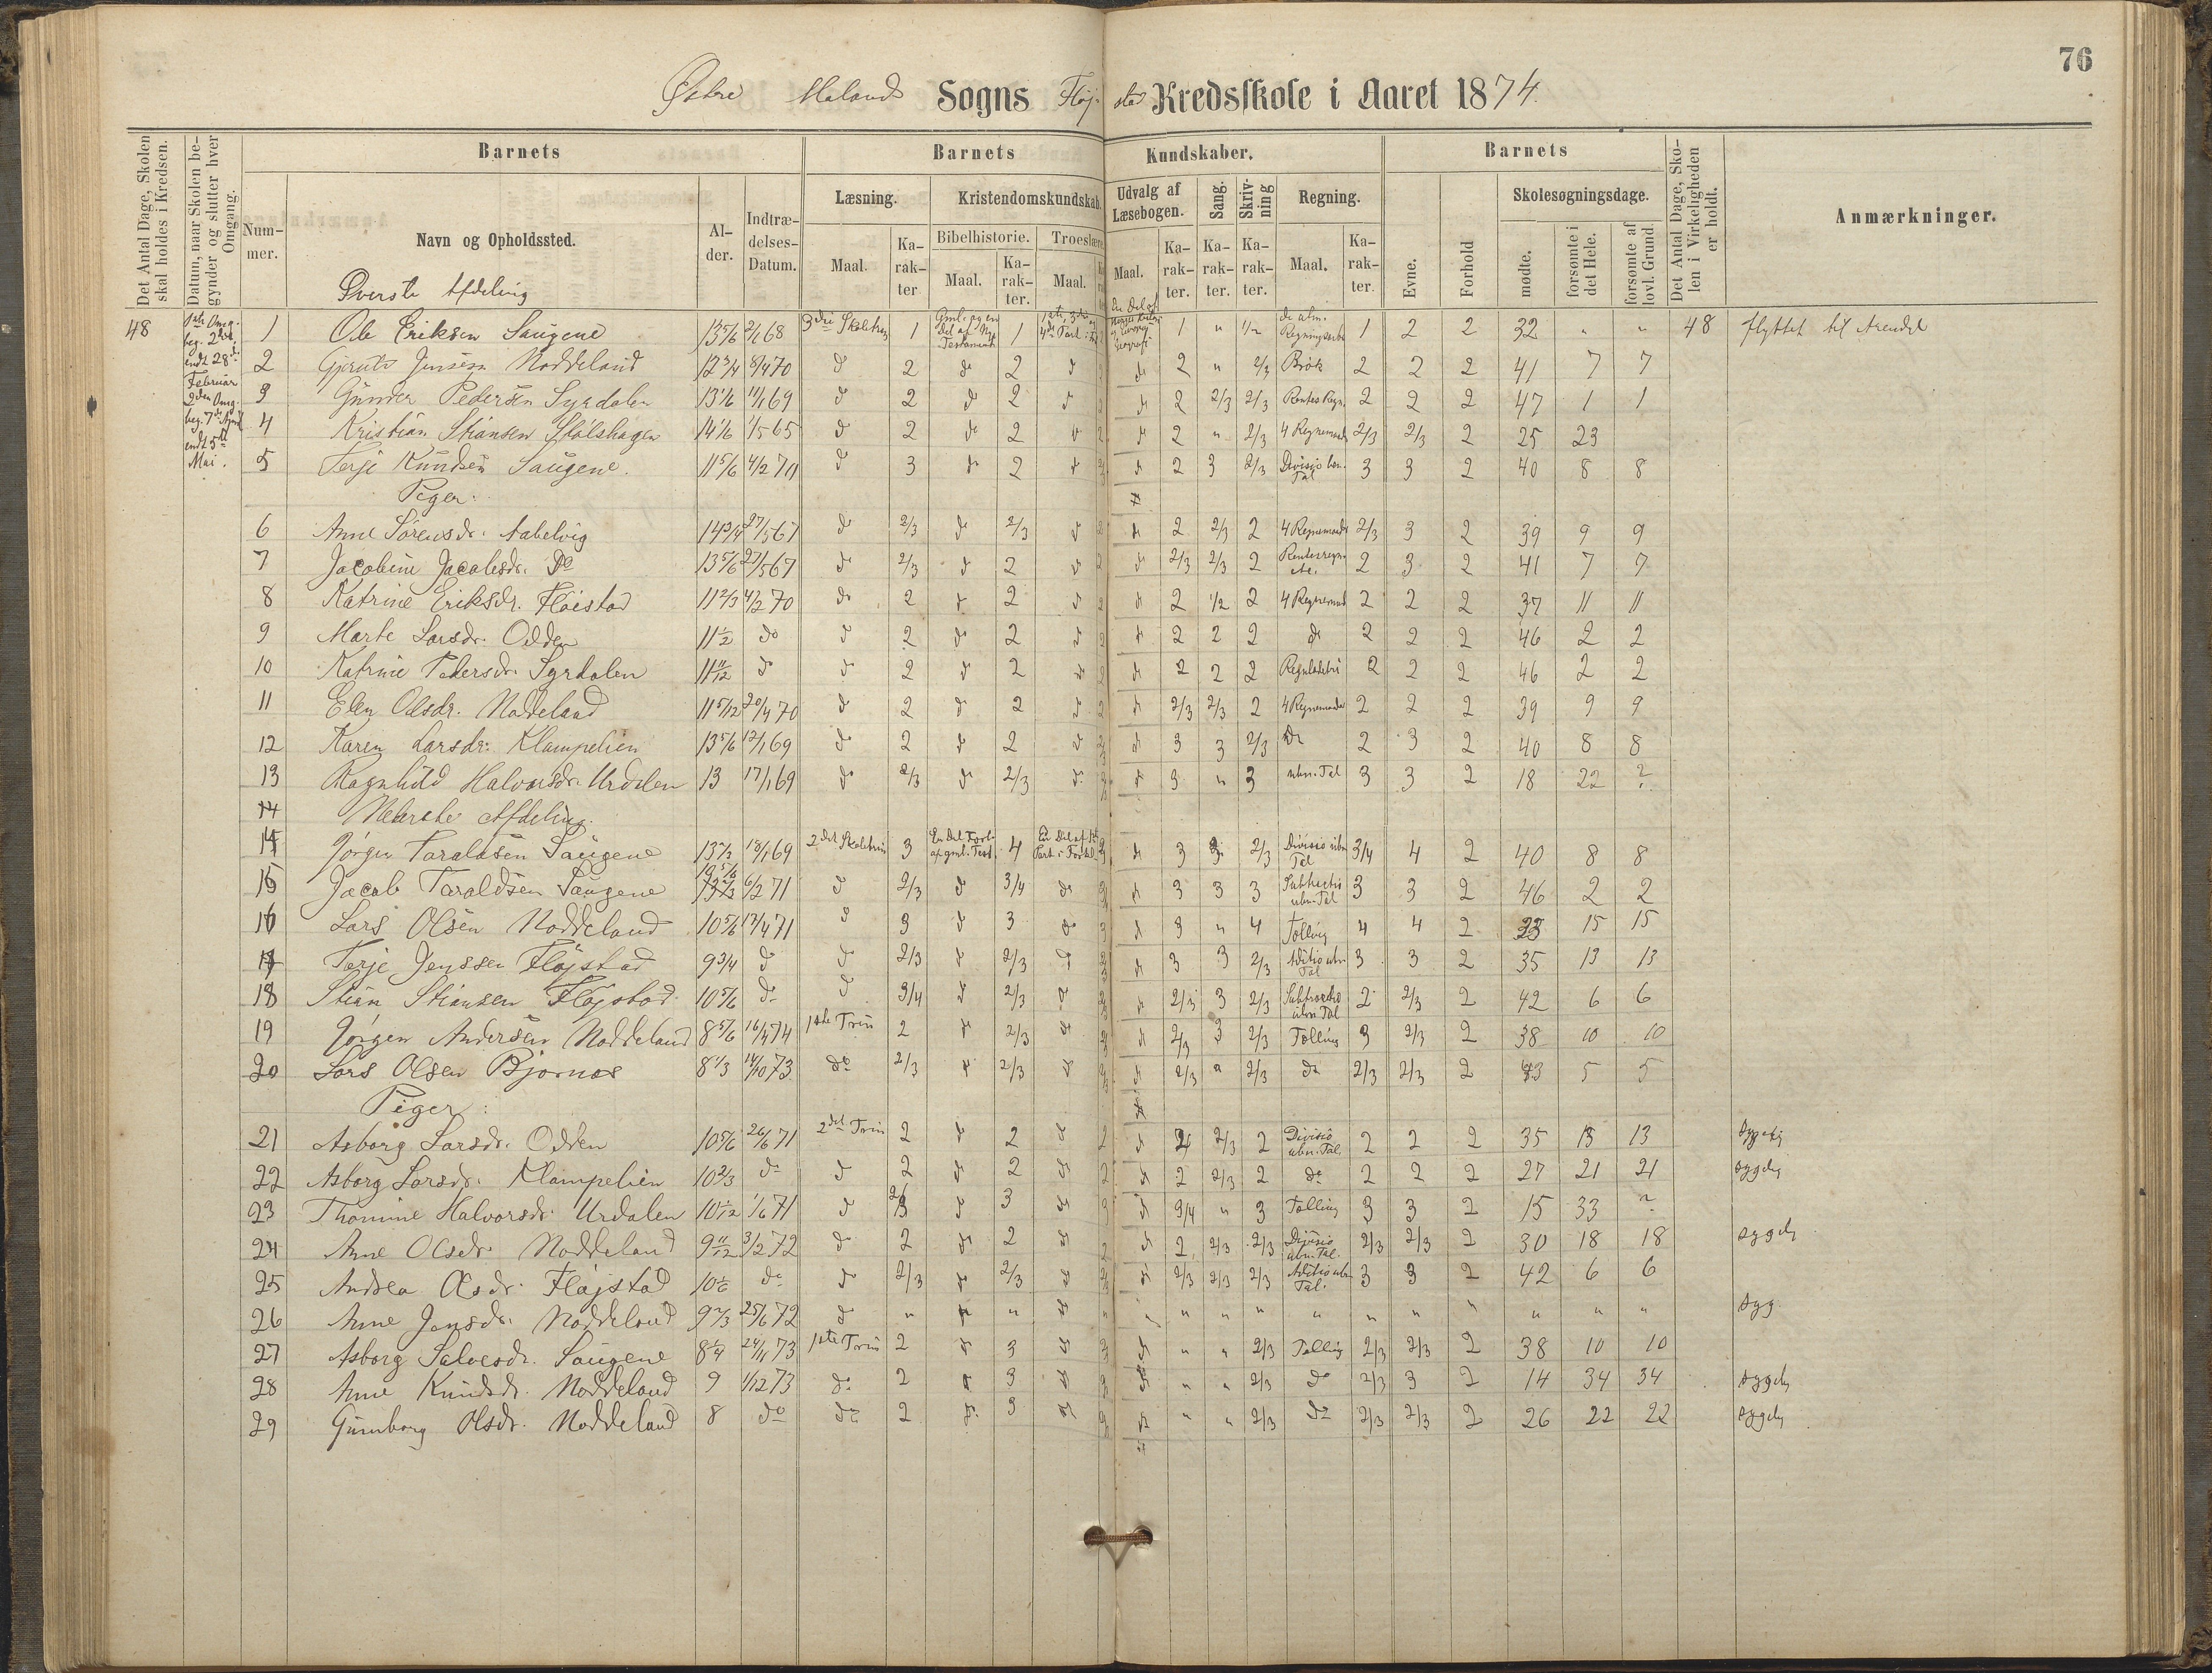 76
Østre Molands Sogns Fløjstad Kredsskole i Aaret 1874.
Det Antal Dage, Skolen skal holdes i Kredsen.
Datum, naar Skolen begynder og slutter hver Omgang.
Barnets
Barnets Kundskaber.
Barnets
Det Antal Dage, Skolen i Virkeligheden er holdt.
Anmærkninger.
Nummer.
Navn og Opholdssted.
Alder.
Indtrædelses-Datum.
Læsning.
Kristendomskundskab.
Udvalg af Læsebogen.
Sang.
Skrivning
Regning.
Evne.
Forhold
Skolesøgningsdage.
Maal.
Karakter
Bibelhistorie.
Troeslære
Maal.
Karakter.
Maal.
Maal.
Karakter.
Karakter.
Karakter.
Maal.
Karakter.
mødte.
forsømte i det Hele.
forsømte af lovl. Grund.
Øverste Afdeling
48 1ste Omg. beg. 2den endt 28de Februar 2den Omg. beg. 7de April endt 5te Mai.
1 Ole Eriksen Saugene 13 5/6 2/1 68 3die Skoletrin 1 Gml. og en Del af Nye Testament 1 1 " 1/2 de alm. Regningsarter 1 2 2 32 " " 48 flyttet til Arendal
2 Gjeruls Jensen Noddeland 12 3/4 8/4 70 do 2 do 2 do do 2 " 2/3 Brök 2 2 2 41 7 7
3 Gunder Pedersen Syrdalen 13 1/6 11/1 69 do 2 do 2 do do 2 2/3 2/3 Rentes Regn. 2 2 2 47 1 1
4 Kristian Stiansen Stölshagen 14 1/6 1/5 65 do 2 do 2 do 2 do 2 " 2/3 4 Regnemaader 2/3 2/3 2 25 23
5 Terje Knudsen Saugene. 11 5/6 4/2 71 do 3 do 2 do do 2 3 2/3 Divisio ben. Tal 3 3 2 40 8 8
Piger.
6 Anne Sörensdr. Aabelvig 14 3/4 27/5 67 do 2/3 do 2/3 do 2 do 2 2/3 2 4 Regnemaader 2/3 3 2 39 9 9
7 Jacobine Jacobsdr. Do 13 5/6 27/5 67 do 2/3 do 2 do 2 do 2/3 2/3 2 Rentesregn. etc. 2 3 2 41 7 7
8 Katrine Eriksdr. Flöistad 11 2/3 4/2 70 do 2 do 2 do 2 do 2 1/2 2 4 Regnemaad 2 2 2 37 11 11
9 Marte Larsdr. Odden 11 1/2 do do 2 do 2 do 2 do 2 2 2 do 2 2 2 46 2 2
10 Katrine Pedersdr. Syrdalen 11 11/12 do do 2 do 2 do 2 do 2 2 2 Reguladetri 2 2 2 46 2 2
11 Elen Olsdr. Noddeland 11 5/12 20/4 70 do 2 do 2 do 2 do 2/3 2/3 2 4 Regnemaader 2 2 2 39 9 9
12 Karen Larsdr: Klampelien 13 5/6 12/1 69 do 2 do 2 do do 3 3 2/3 Do 2 3 2 40 8 8
13 Ragnhild Halvorsdr. Urdalen 13 17/1 69 do 2/3 do 2/3 do do 3 " 3 ubn. Tal 3 3 2 18 22 ?
14 Nederste Afdeling.
14 Jörgen Taraldsen Saugene 13 1/2 18/1 69 2det Skoletrin 3 En Del Fort. af gml. Test. 4 En Del af 1ste Part i Forkl. do 3 3 2/3 Divisio ubn Tal 3/4 4 2 40 8 8
15 Jacob Taraldsen Saugene 10 5/6 6/2 71 do 2/3 do 3/4 do do 3 3 3 Subtractio ubn. Tal 3 3 2 46 2 2
16 Lars Olsen Noddeland 10 5/6 17/4 71 do 3 do 3 do 3 do 3 " 4 Tælling 4 4 2 33 15 15
17 Terje Jenssen Fløjstad 9 3/4 do do 2/3 do 2/3 do do 3 3 2/3 Aditio ubn. Tal 3 3 2 35 13 13
18 Stian Stiansen Fløjstad. 10 5/6 do do 3/4 do 2/3 do do 2/3 3 2/3 Subtractio ubn Tal 2 2/3 2 42 6 6
19 Jörgen Andersen Noddeland 8 5/6 16/4 74 1ste Trin 2 do 2/3 do do 2/3 3 2/3 Tælling 3 2/3 2 38 10 10
20 Lars Olsen Bjørnaes 8 1/3 14/10 73 do 2/3 do 2/3 do do 2/3 " 2/3 do 2/3 2/3 2 43 5 5
Piger:
21 Asborg Larsdr. Odden 10 5/6 26/6 71 2det Trin 2 do 2 do 2 do 2/3 2 Divisio ubn. Tal. 2 2 2 35 13 13 sygelig
22 Asborg Larsdr. Klampelien 10 2/3 do do 2 do 2 do 2 do 2 2/3 2 do 2 2 2 27 21 21 sygelig
23 Thomine Halvorsdr. Urdalen 10 1/12 1/6 71 do 2/3 do 3 do 3 do 3/4 " 3 Tælling 3 3 2 15 33 ?
24 Anne Olsdr. Noddeland 9 11/12 3/2 72 do 2 do 2 do 2 do 2 2/3 2/3 Divisio ubn. Tal. 2/3 2/3 2 30 18 18 sygelig
25 Andrea Olsdr. Fløjstad 10 1/6 do do 2/3 do 2/3 do do 2/3 2/3 2/3 Aditio ubn Tal. 3 3 2 42 6 6
26 Anne Jensdr. Noddeland 9 2/3 25/6 72 do " do " do " " " " " " " " " " " syg.
27 Asborg Salvesdr. Saugene 8 1/4 24/11 73 1ste Trin 2 do 3 do do " " 2/3 Tælling 2/3 2/3 2 38 10 10
28 Anne Knudsdr. Noddeland 9 1/12 73 do 2 do 3 do do " " 2/3 do 2/3 3 2 14 34 34 sygelig
29 Gunborg Olsdr. Noddeland 8 do do 2 do 3 do do " " 2/3 do 2/3 2/3 2 26 22 22 sygelig